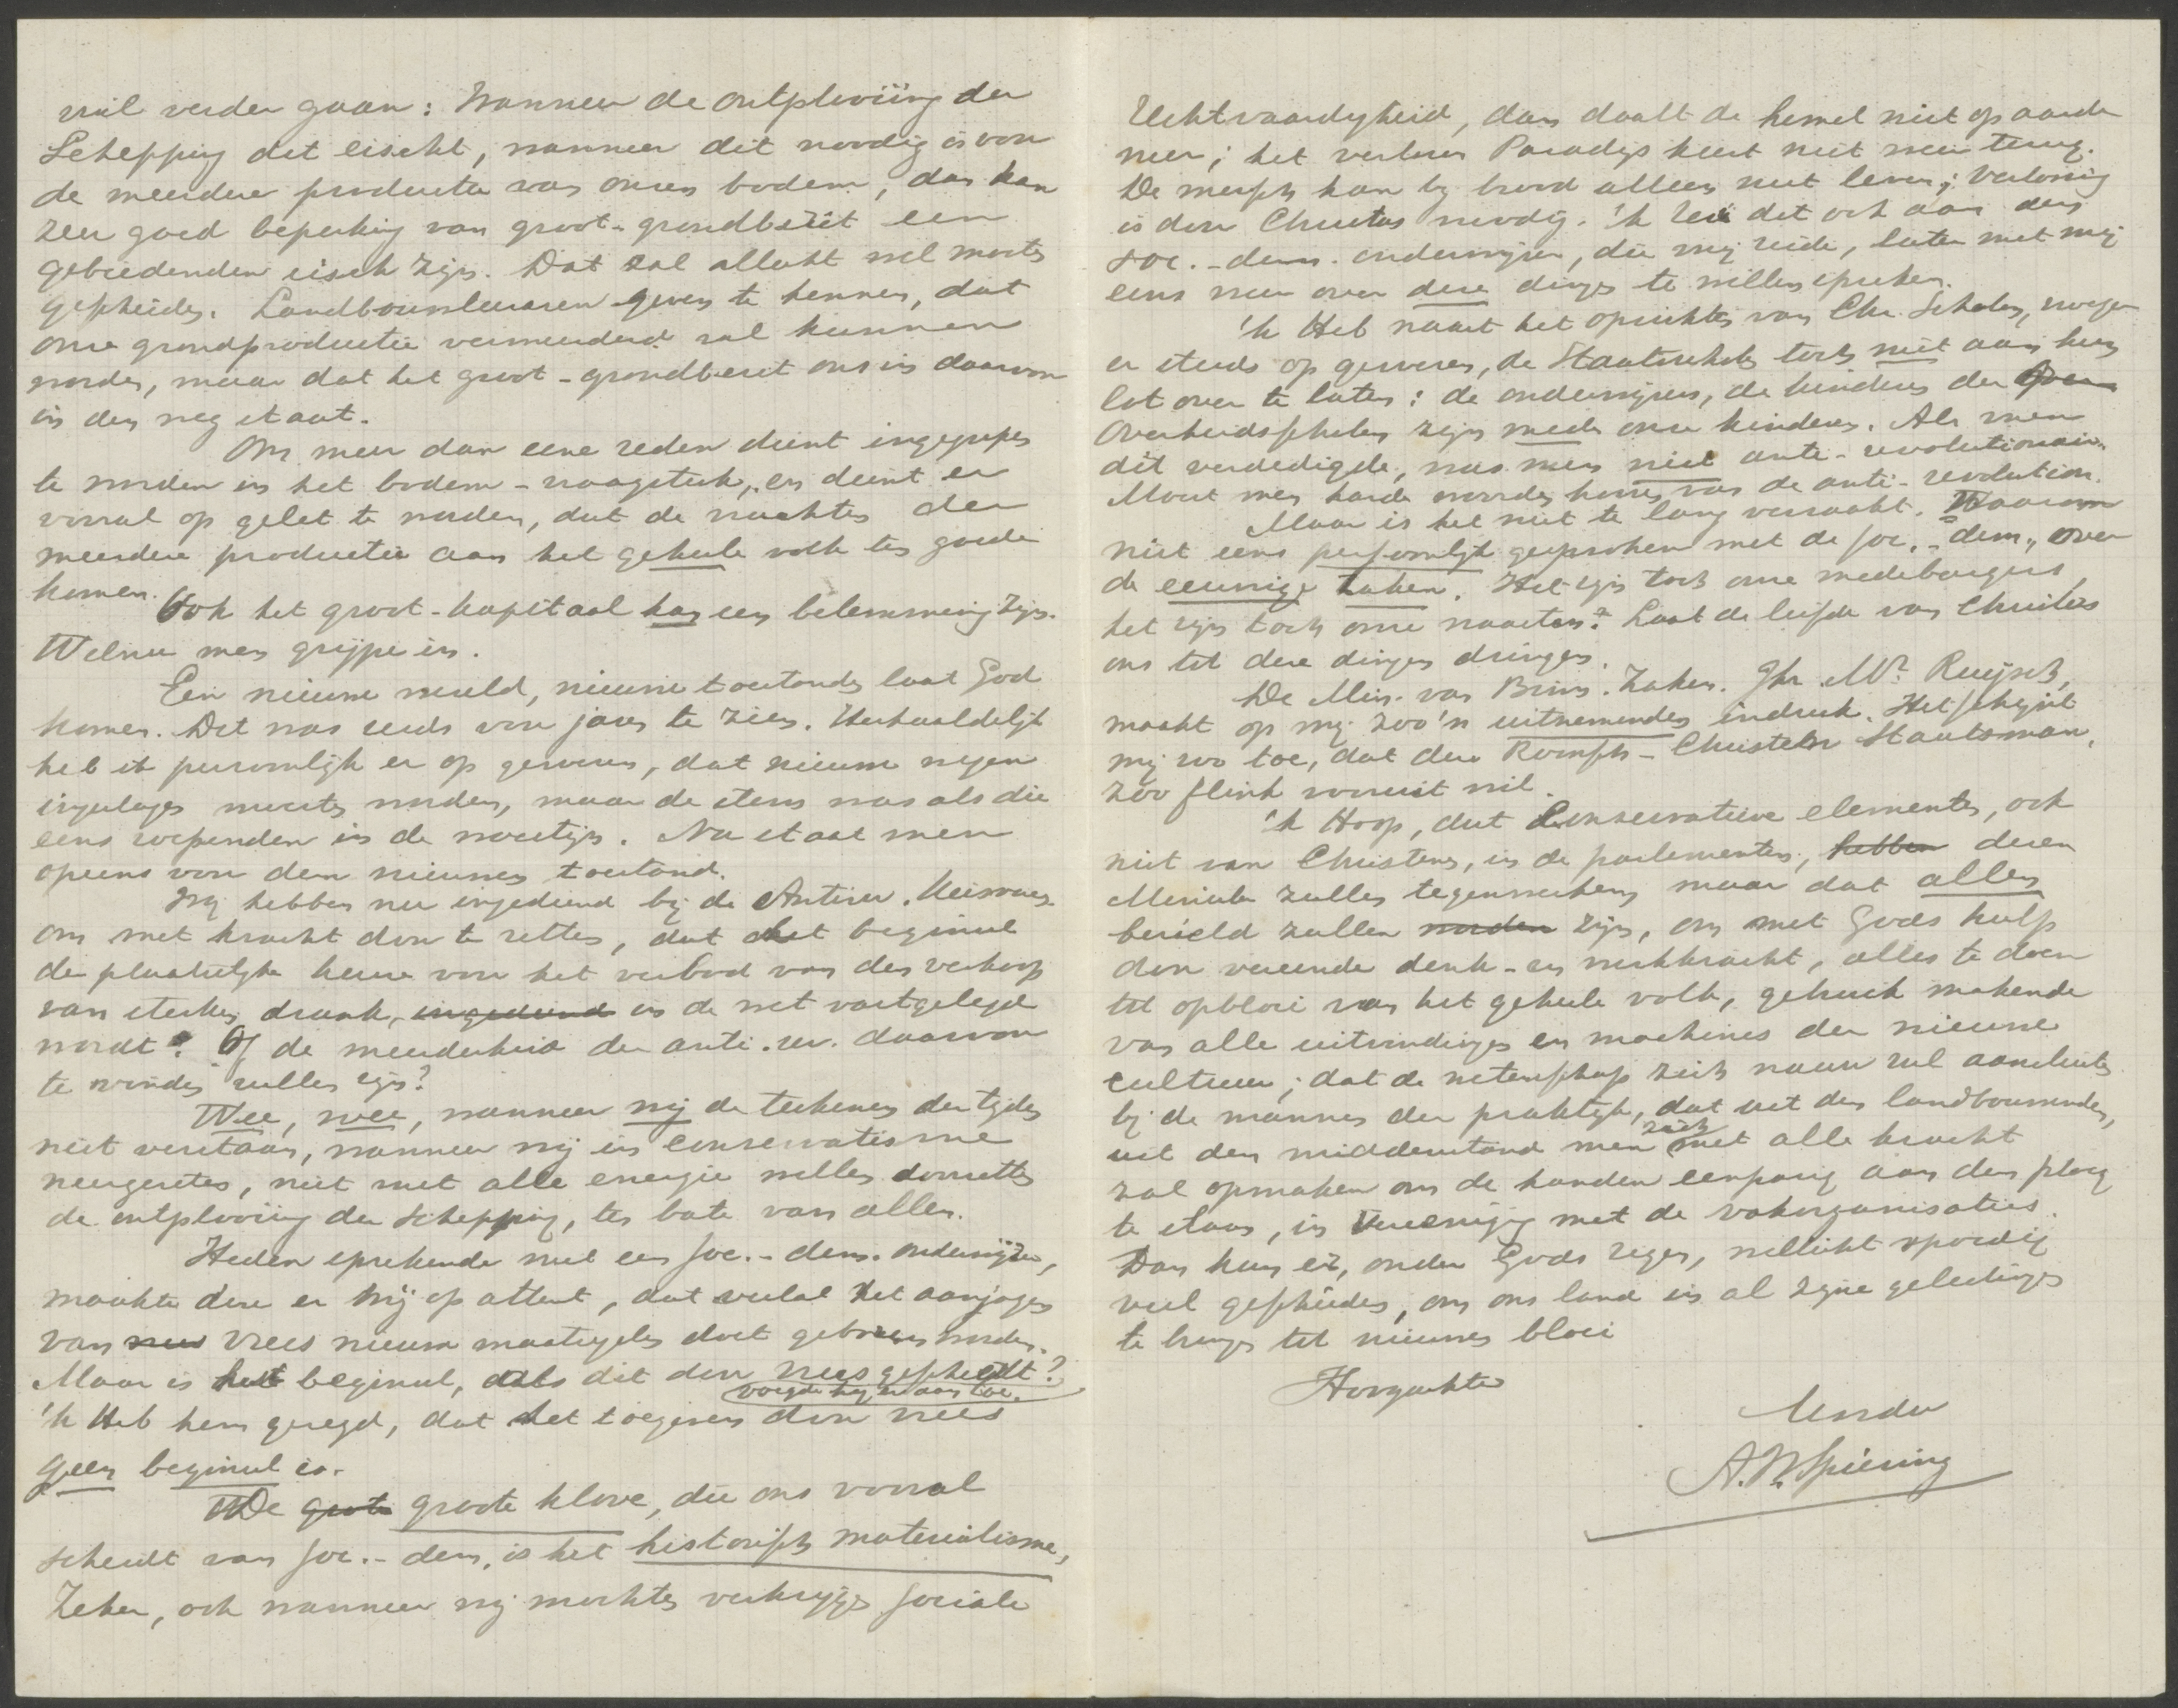 wil verder gaan: Wanneer de ontplooiing der
Schepping dit eischt, wanneer dit noodig is voor
de meerdere productie van onzen bodem, dan kan
zeer goed beperking van groot-grondbezit een
gebiedenden eisch zijn. Dat zal allicht wel moeten
geschieden. Landbouwleeraren geven te kennen, dat
onze grondproductie vermeerderd zal kunnen
worden, maar dat het groot-grondbezit ons in daarvan
in den weg staat.
Om meer dan eene reden dient ingegrepen
te worden in het bodem-vraagstuk, en dient er
vooral op gelet te worden, dat de vruchten der
meerdere productie aan het geheele volk ten goede
komen.
Ook het groot-kapitaal kan een belemmering zijn.
Welnu men grijpe in.
Een nieuwe wereld, nieuwe toestanden laat God
komen. Dit was reeds voor jaren te zien. Herhaaldelijk
heb ik persoonlijk er op gewezen, dat nieuwe wegen
ingeslagen moesten worden, maar de stem was als die
eens roependen in de woestijn. Nu staat men
opeens voor den nieuwen toestand.
Wij hebben nu ingediend bij de Antirev. Kiesver.
om met kracht door te zetten, dat het beginsel
der plaatselijke keuze voor het verbod van den verkoop
van sterken drank, ingediend in de wet vastgelegd
wordt. Of de meerderheid der anti.rev. daarvoor
te vinden zullen zijn?
Wee, wee, wanneer wij de teekenen der tijden
niet verstaan, wanneer wij in conservatisme
neergezeten, niet met alle energie willen doorzetten
de ontplooiing der Schepping, ten bate van allen.
Heden sprekende met een soc.-dem. onderwijzer,
maakte deze er mij op attent, dat veelal het aanjagen
van vrees nieuwe maatregelen doet geboren worden.
Maar is het beginsel, als dit door vrees geschiedt?
voegde hij er aan toe.
'k Heb hem gezegd, dat het toegeven door vrees
geen beginsel is.
De groote groote klove, die ons vooral
scheidt van soc.-dem. is het historisch materialisme,
Zeker, ook wanneer wij mochten verkrijgen sociale
Rechtvaardigheid, dan daalt de hemel niet op aarde
neer; het verloren Paradijs keert niet weer terug.
De mensch kan bij brood alleen niet leven; verlossing
is door Christus noodig. 'k Zei dit ook aan den
soc.-dem. onderwijzer, die mij zeide, later met mij
eens weer over deze dingen te willen spreken.
'k Heb naast het oprichten van Chr. Scholen, vroeger
er steeds op gewezen, de Staatsschole toch niet aan hun
lot over te laten: de onderwijzers, de kinderen der
Overheidsscholen zijn mede onze kinderen. Als men
dit verdedigde, was men niet anti-revolutionair.
Moest men harde woorden hooren van de anti-revolution.
Maar is het niet te lang verzaakt. Waarom
niet eens persoonlijk gesproken met de soc.-dem., over
de eeuwige zaken. Het zijn toch onze medeburgers,
het zijn toch onze naasten? Laat de liefde van Christus
ons tot deze dingen dringen.
De Min. van Binn. Zaken. Jhr. Mr. Ruijsch,
maakt op mij zoo'n uitnemenden indruk. Het schijnt
mij zoo toe, dat deze Roomsch-Christelr Staatsman,
zoo flink vooruit wil.
'k Hoop, dat Conservatieve elementen, ook
niet van Christenen, in de parlementen, hebben dezen
Minister zullen tegenwerken, maar dat allen
bezield zullen worden zijn, om met Gods hulp
door vereende denk- en werkkracht, alles te doen
tot opbloei van het geheele volk, gebruik makende
van alle uitvindingen en machines der nieuwe
cultuur; dat de wetenschap zich nauw zal aansluiten
bij de mannen der praktijk, dat uit den landbouwenden,
uit den middenstand men zich met alle kracht
zal opmaken om de handen eenparig aan den ploeg
te slaan, in Vereeniging met de vakorganisaties.
Dan kan er, onder Gods zegen, wellicht spoedig
veel geschieden, om ons land in al zijne geledingen
te brengen tot nieuwen bloei
Hoogachte
A.N. Spiering